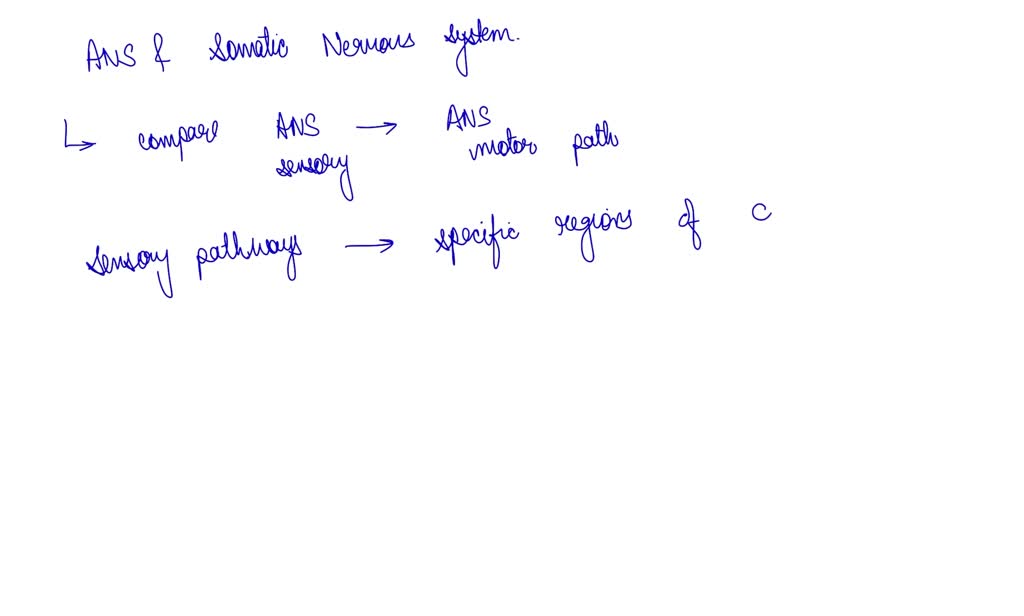 ANS & Somatic Nervous system.
↳ compare ANS sensory → ANS motor path
sensory pathways → specific regions of C